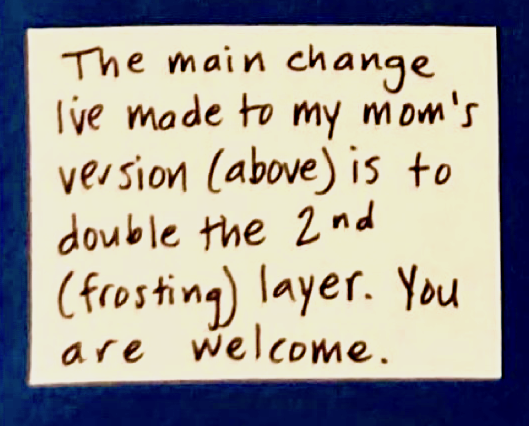 The main change
I've made to my mom's
version (above) is to
double the 2nd
(frosting) layer. You
are welcome.